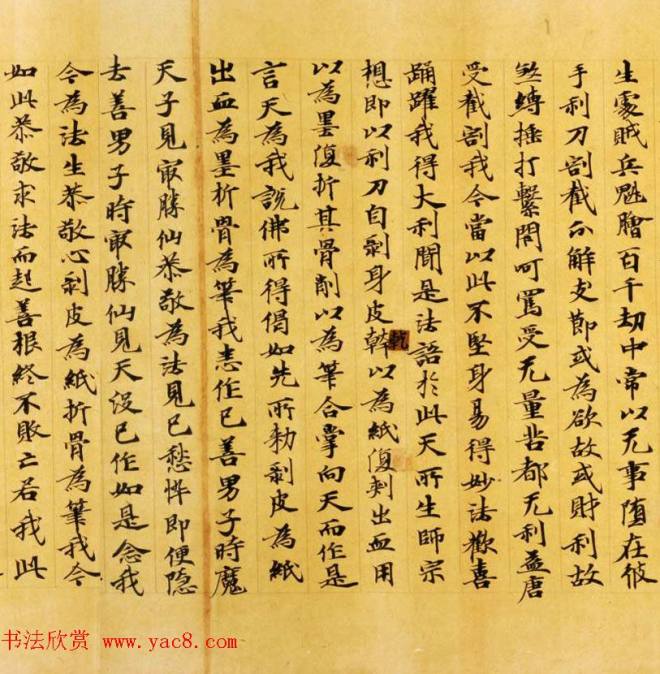 生處賊兵魁膾百千劫中常以无事墮在彼
手利刀割截而解支節或為欲故或財利故
煞縛捶打繫閇呵罵受无量苦都无利益唐
受截割我今當以此不堅身易得妙法歡喜
踊躍我得大利聞是法語於此天所生師宗
想即以利刀自剥身皮乾以為紙復刾出血用
乾
以為墨復折其骨削以為筆合掌向天而作是
言天為我說佛所得偈如先所勑剥皮為紙
出血為墨折骨為筆我悉作已善男子時魔
天子見㝡勝仙恭敬為法見已愁悴即便隐
去善男子時㝡勝仙見天没已作如是念我
今為法生恭敬心剥皮為紙折骨為筆我今
如此恭敬求法而起善根終不敗亡若我此
书法欣赏 www.yac8.com